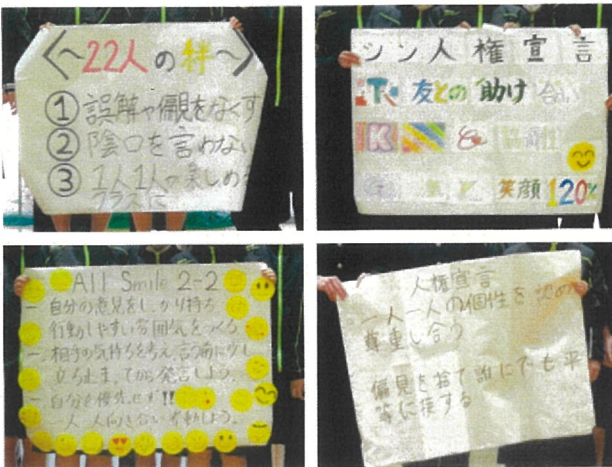 〈～22人の絆～〉
① 誤解や偏見をなくす
② 陰口を言わない
③ 1人1人が楽しめる
クラスに
シン人権宣言
T 友との助け合い
K &
笑顔120%
All Smile 2-2
一 自分の意見をしっかり持ち
行動しやすい雰囲気をつくろう
一 相手の気持ちを考え、言う前に少し
立ち止まってから発言しよう。
一 自分を優先せず!!
一人一人向き合い行動しよう。
人権宣言
一人一人の個性を認め
尊重し合う
偏見を捨て誰にでも平
等に接する